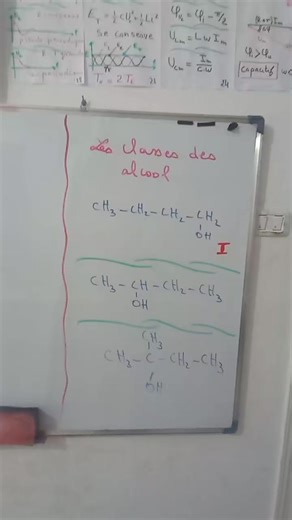 E_T = ½CU² + ½Li²
se conserve
T₀ = 2T_E
U_Lm = L w I_m
U_cm = I_m / C.w
24
capacitif
Les classes des
alcool
CH₃ – CH₂ – CH₂ – CH₂
OH
I
CH₃ – CH – CH₂ – CH₃
OH
CH₃
CH₃ – C – CH₂ – CH₃
OH